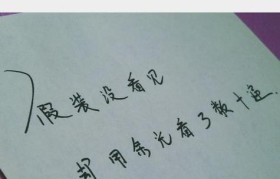 假装没看见
却用余光看了数十遍.